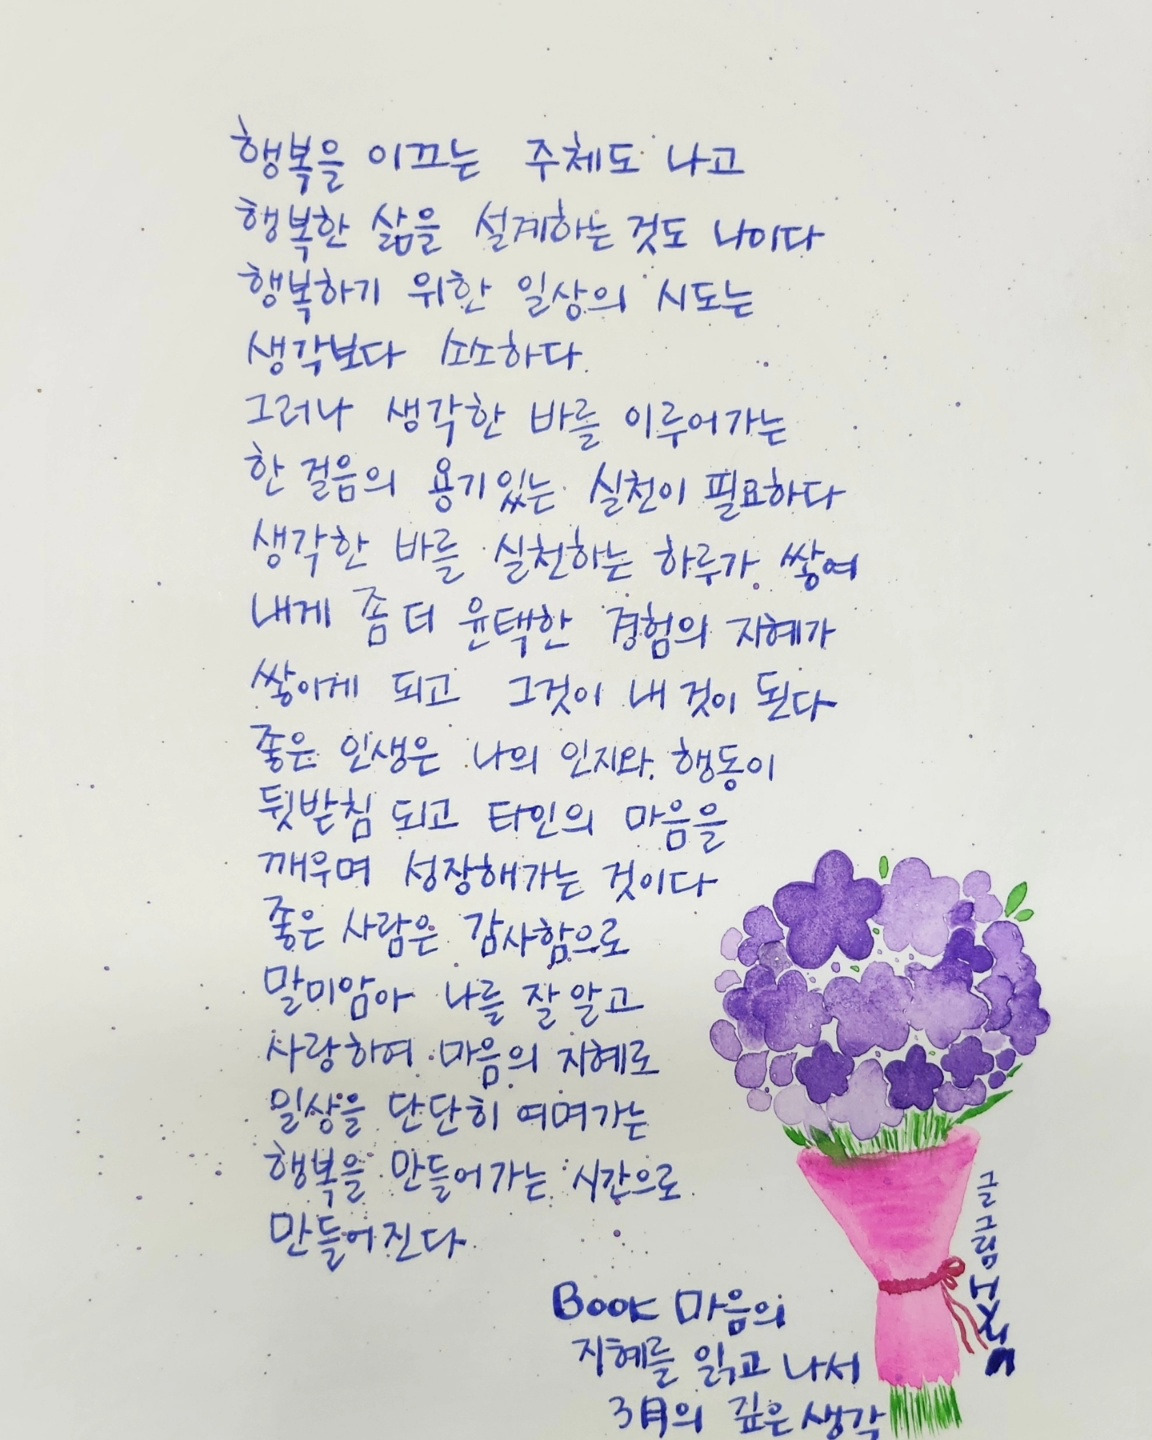 행복을 이끄는 주체도 나고
행복한 삶을 설계하는 것도 나이다
행복하기 위한 일상의 시도는
생각보다 소소하다.
그러나 생각한 바를 이루어가는
한 걸음의 용기있는 실천이 필요하다
생각한 바를 실천하는 하루가 쌓여
내게 좀 더 윤택한 경험의 지혜가
쌓이게 되고 그것이 내 것이 된다
좋은 인생은 나의 인지와 행동이
뒷받침 되고 타인의 마음을
깨우며 성장해가는 것이다
좋은 사람은 감사함으로
말미암아 나를 잘 알고
사랑하여 마음의 지혜로
일상을 단단히 여며가는
행복을 만들어가는 시간으로
만들어진다
Book 마음의
지혜를 읽고 나서
3月의 깊은 생각
글그림